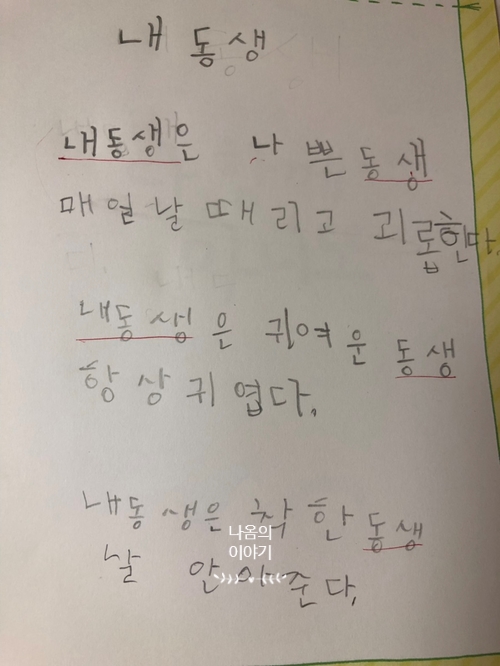 내 동생
내동생은 나쁜동생
매일날때리고 괴롭힌다.
내동생은 귀여운 동생
항상귀엽다.
내동생은 착한동생
나옴의
이야기
날 안아준다.